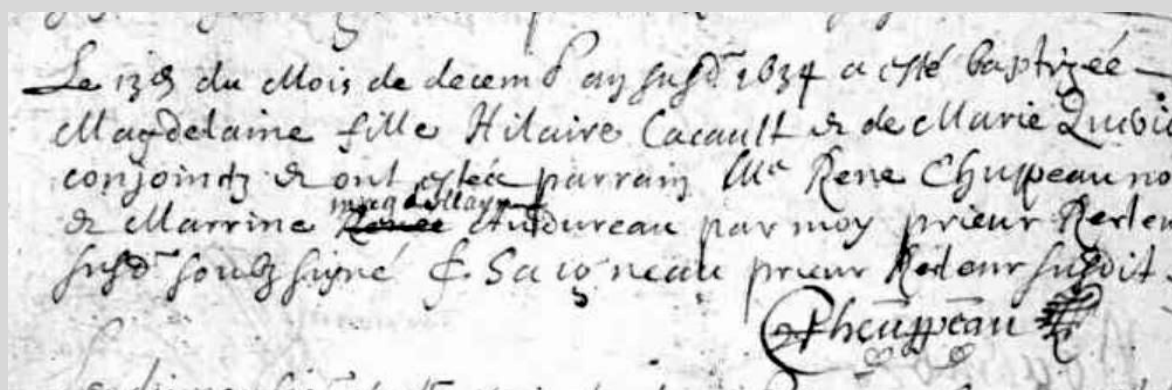 Le 13e du Mois de decemb an susd 1634 a esté baptizée
Magdelaine fille Hilaire Cacault & de Marie
conjointz & ont estéz parrain Me Rene Chuppeau no
magdellayne
& Marrine Renee Audureau par moy prieur Recteu
susd soubzsigné Saigneau prieur Recteur susdit
Cheuppeau